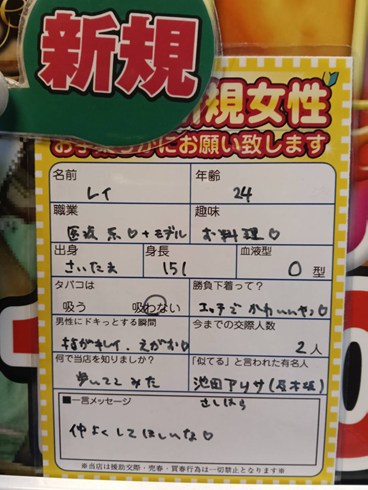 新規
新規女性
にお願い致します
名前
レイ
年齢
24
職業
医療系♡+モデル
趣味
お料理♡
出身
さいたま
身長
151
血液型
O型
タバコは
吸う
吸わない
勝負下着って?
エッチでかわいいやつ♡
男性にドキっとする瞬間
えがお♡
今までの交際人数
2人
何で当店を知りましたか?
歩いててみた
「似てる」と言われた有名人
池田アリサ(乃木坂)
さしはら
■一言メッセージ
仲よくしてほしいな♡
※当店は援助交際・売春・買春行為は一切禁止となります※